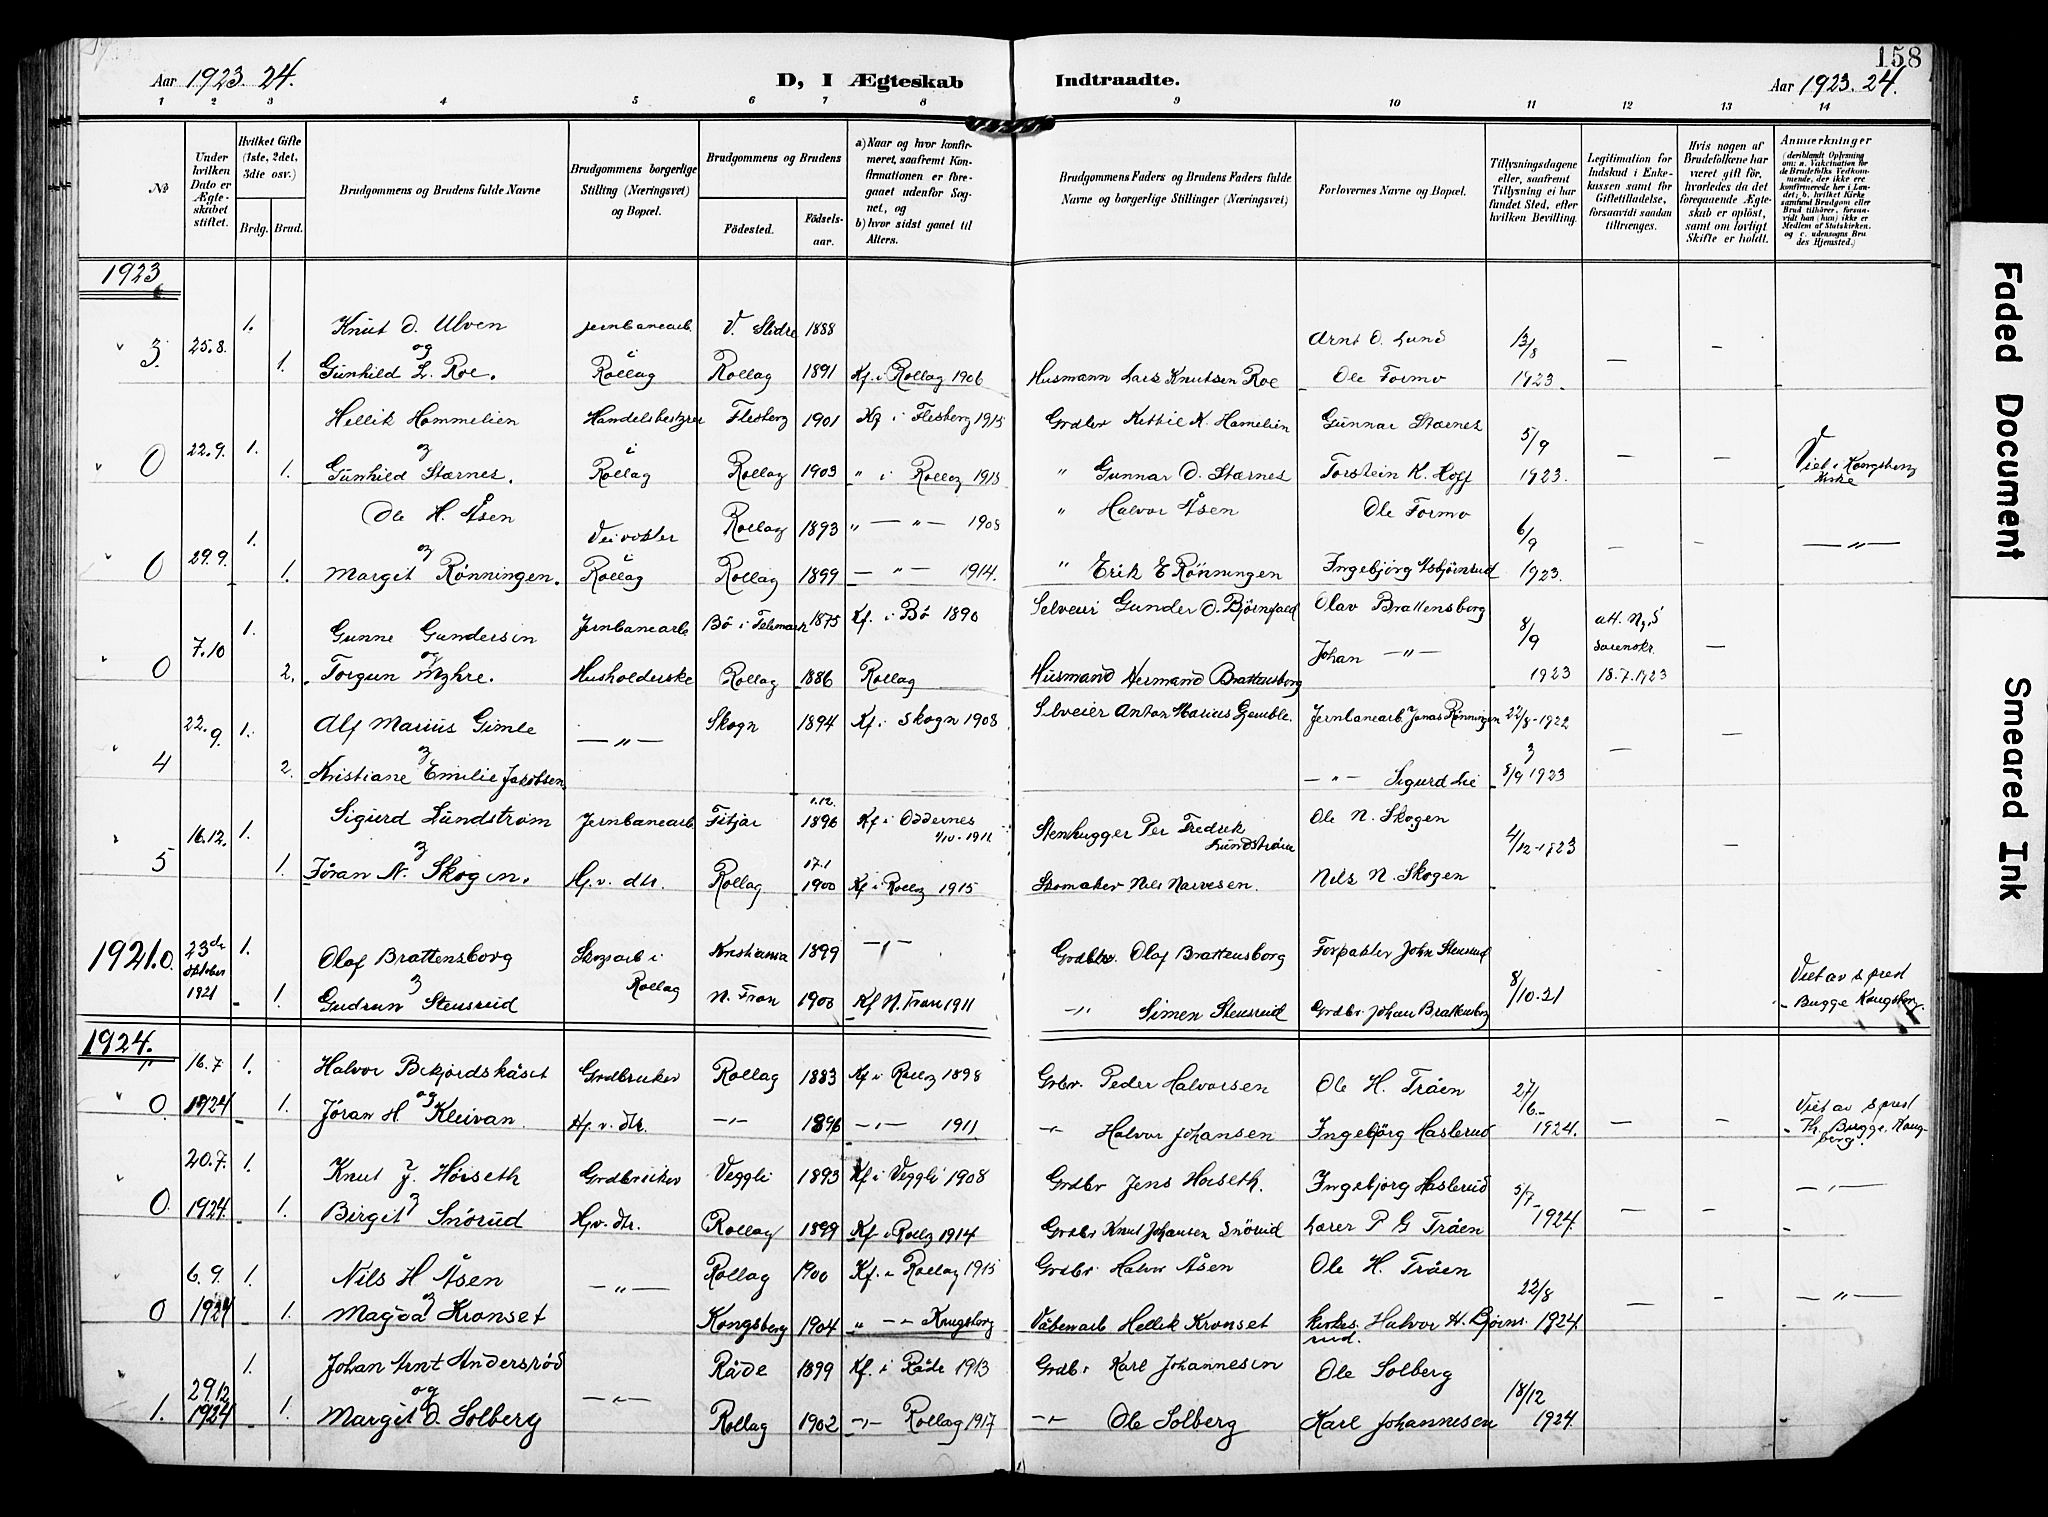 158
Aar 1923. 24.
D, I Ægteskab Indtraadte.
Aar 1923. 24.
1 2 3 4 5 6 7 8 9 10 11 12 13 14
No
Under hvilken Dato er Ægteskabet stiftet.
Hvilket Gifte (1ste, 2det, 3die osv.)
Brdg. Brud.
Brudgommens og Brudens fulde Navne
Brudgommens borgerlige Stilling (Næringsvei) og Bopæl.
Brudgommens og Brudens
Födested.
Födsels-aar.
a) Naar og hvor konfirmeret, saafremt Konfirmationen er foregaaet udenför Sognet, og
b) hvor sidst gaaet til Alters.
Brudgommens Faders og Brudens Faders fulde Navne og borgerlige Stillinger (Næringsvei)
Forlovernes Navne og Bopæl.
Tillysningsdagene eller, saafremt Tillysning ei har fundet Sted, efter hvilken Bevilling.
Legitimation for Indskud i Enkekassen samt for Giftetilladelse, forsaavidt saadan tiltrænges.
Hvis nogen af Brudefolkene har været gift för, hvorledes da det foregaaende Ægteskab er oplöst, samt om lovligt Skifte er holdt.
Anmærkninger
(deriblandt Oplysning om: a. Vakcination for de Brudefolks Vedkommende, der ikke ere konfirmerede her i Landet; b. hvilket Kirkesamfund Brudgom eller Brud tilhörer, forsaavidt han (hun) ikke er Medlem af Statskirken. og c. udensogns Brudes Hjemsted.)
1923
Knut O. Ulven Jernbanearb. V. Slidre 1888 Arnt O. Lund 13/8
3. 25.8. 1. og i
1. Gunhild L. Roe. Rollag Rollag 1891 Kf. i Rollag 1906 Husmann Lars Knutsen Roe Ole Formo 1923.
Hellik Hammelien Handelsbestyrer Flesberg 1901 Kf i Flesberg 1915 Grdbr Kittil K. Hamelien Gunnar Stærnes 5/9
0 22.9. 1. og i
1. Gunhild Stærnes. Rollag Rollag 1903 " i Rollag 1918 " Gunnar O. Stærnes Torstein K. Hoff 1923. Viet i Kongsberg Kirke
Ole H. Åsen Veivokter Rollag 1893 " — " — 1908 " Halvor Åsen Ole Formo 6/9
0 29.9. 1. og i — " —
1. Margit Rønningen. Rollag Rollag 1899 — " — 1914. " Erik E Rønningen Ingebjörg Asbjörnrud 1923.
Gunne Gundersen Jernbanearb Bö i Telemark 1875 Kf. i Bö 1890 Selveier Gunder O. Björnsfald Olav Brattensborg 8/9
0 7.10 1. og Johan — " —
2. Torgun Myhre. Husholderske Rollag 1886 Rollag Husmand Hermand Brattensborg 1923 18.7.1923
Alf Marius Gimle — " — Skogn 1894 Kf. i Skogn 1908 Selveier Anton Marius Gjemble. Jernbanearb. Jonas Rønningen 22/8-1922
4 22.9. 1. og
2. Kristiane Emilie Jakobsen — " — Sigurd Lie 5/9 1923
Sigurd Lundstrøm Jernbanearb Fitjar 1.12. 1896 Kf i Oddernes 1/10-1911 Stenhugger Per Fredrik Lundstrøm Ole N. Skogen 4/12-1923
5 16.12. 1. og
1. Jöran N. Skogen. Hj.v. dtr. Rollag 17.1 1900 Kf i Rollag 1915 Skomaker Nils Narvesen. Nils N. Skogen
1921. 0. 23de oktober 1921 1. Olaf Brattensborg Skogsarb i Rollag Kristiania 1899 — " — Grdbr. Olaf Brattensborg Forpakter John Stensrud 8/10.21
og
1. Gudrun Stensrud N. Fron 1900 Kf N. Fron 1911 — " — Simen Stensrud Grdbr. Johan Brattensborg Viet av s.prest Bugge Kongsberg.
1924.
16.7 1. Halvor Bekjordskåset Grdbruker Rollag 1883 Kf i Rollag 1898 Grbr. Peder Halvorsen Ole H. Tråen 27/6-
0. 1924 1. og Jöran H Kleivan. Hj.v. dtr. — " — 1896 — " — 1911 " Halvor Johansen Ingebjörg Haslerud 1924. Viet av s.prest Th. Bugge, Kongsberg.
20.7. 1. Knut J. Höiseth Grdbruker Veggli 1893 Kf. i Veggli 1908 Grdbr Jens Höiseth. Ingebjörg Haslerud 5/7-
0. 1924. 1. og Birgit Snörud Hj.v. dtr. Rollag 1899 Kf. i Rollag 1914 Grdbr Knut Johansen Snörud Lærer P G Tråen 1924. — " —
6.9. 1. Nils H Åsen — " — Rollag 1900 Kf. i Rollag 1915 Grdbr. Halvor Åsen Ole H. Tråen 22/8
0 1924 1. og Magda Kronset Kongsberg 1904 " — " — Kongsberg Våbenarb Hellik Kronset Kirkes. Halvor H. Björnsrud. 1924. — " —
1. Johan Arnt Andersröd — " — Råde 1899 Kf. i Råde 1913 Grdbr Karl Johannesen Ole Solberg 18/12
1. 29.12 1924 1. og Margit O. Solberg Rollag 1902 — " — Rollag 1917 — " — Ole Solberg Karl Johannesen 1924.
Faded Document
Smeared Ink